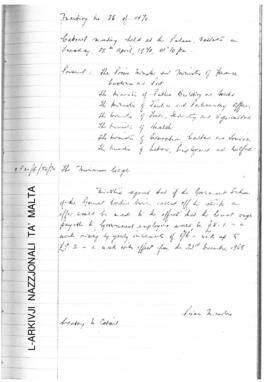 Meeting no 26 of 1970
Cabinet meeting held at the Palace, Valletta on
Tuesday, 28th April, 1970 at
Present: The Prime Minister and Minister of Finance
Customs and Port
The Minister of Public Building and Works
The Minister of Justice and Parliamentary Affairs
The Minister of Trade, Industry and Agriculture
The Minister of Health
The Minister of Education, Culture and Tourism
The Minister of Labour, Employment and Welfare
The Minimum Wage
Ministers agreed that if the
of the General Workers Union called off the strike an
offer would be made to the effect that the lowest wage
payable to Government employees would be
week rising by yearly increments of up to
a week with effect from the
Prime Minister
Secretary to Cabinet
L-ARKIVJI NAZZJONALI TA' MALTA